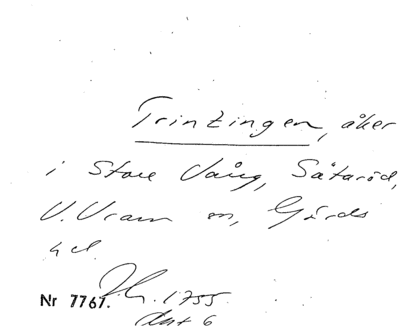 Trintingen, åker
i Store Vång, Såtaröd,
V. Vram sn, Gärds
hd.
Nr 7767. 1755
akt 6